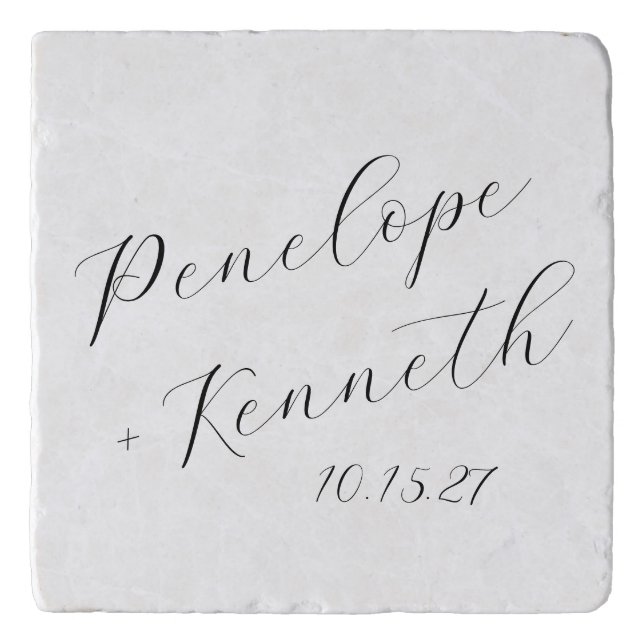 Penelope
+ Kenneth
10.15.27